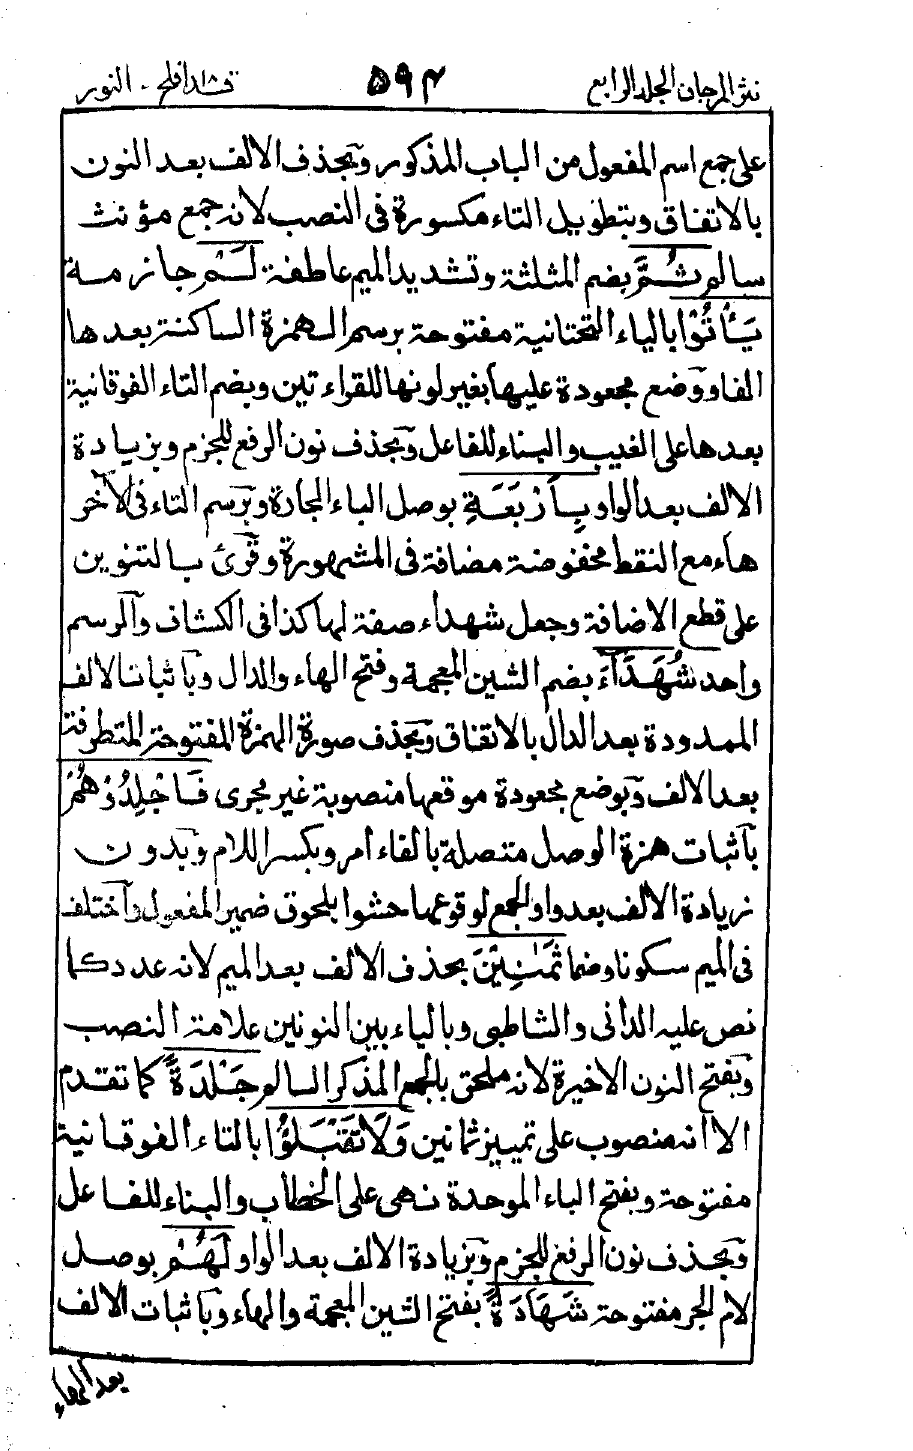 نثر المرجان الجلد الرابع ۵۹۴ قد افلح ١٨ - النور
على جمع اسم المفعول من الباب المذكور وبحذف الالف بعد النون
بالاتفاق وبتطويل التاء مكسورة فى النصب لانه جمع مؤنث
سالم ثُمَّ بضم المثلثة وتشديد الميم عاطفة لَمْ جازمة
يَأْتُوْا بالياء التحتانية مفتوحة برسم الهمزة الساكنة بعدها
الفا ووضع مجعودة عليها بغير لونها للقراءتين وبضم التاء الفوقانية
بعدها على الغيب والبناء للفاعل وبحذف نون الرفع للجزم وبزيادة
الالف بعد الواو بِأَرْبَعَةِ بوصل الباء الجارة وبرسم التاء فى الآخر
هاء مع النقط مخفوضة مضافة فى المشهورة وقرئ بالتنوين
على قطع الاضافة وجعل شهداء صفة لها كذا فى الكشاف والرسم
واحد شُهَدَآءَ بضم الشين المعجمة وفتح الهاء والدال وباثبات الالف
الممدودة بعد الدال بالاتفاق وبحذف صورة الهمزة المفتوحة المتطرفة
بعد الالف وبوضع مجعودة موقعها منصوبة غير مجرى فَاجْلِدُوْهُمْ
باثبات همزة الوصل متصلة بالفاء امر وبكسر اللام وبدون
زيادة الالف بعد واو الجمع لوقوعها حشوا بلحوق ضمير المفعول واختلف
فى الميم سكونا وضما ثَمٰنِيْنَ بحذف الالف بعد الميم لانه عدد كما
نص عليه الدانى والشاطبى وبالياء بين النونين علامة النصب
وبفتح النون الاخيرة لانه ملحق بالجمع المذكر السالم جَلْدَةً كما تقدم
الا انه منصوب على تمييز ثمانين وَلَا تَقْبَلُوْا بالتاء الفوقانية
مفتوحة وبفتح الباء الموحدة نهى على الخطاب والبناء للفاعل
وبحذف نون الرفع للجزم وبزيادة الالف بعد الواو لَهُمْ بوصل
لام الجر مفتوحة شَهَادَةً بفتح الشين المعجمة والهاء وباثبات الالف
بعد الهاء